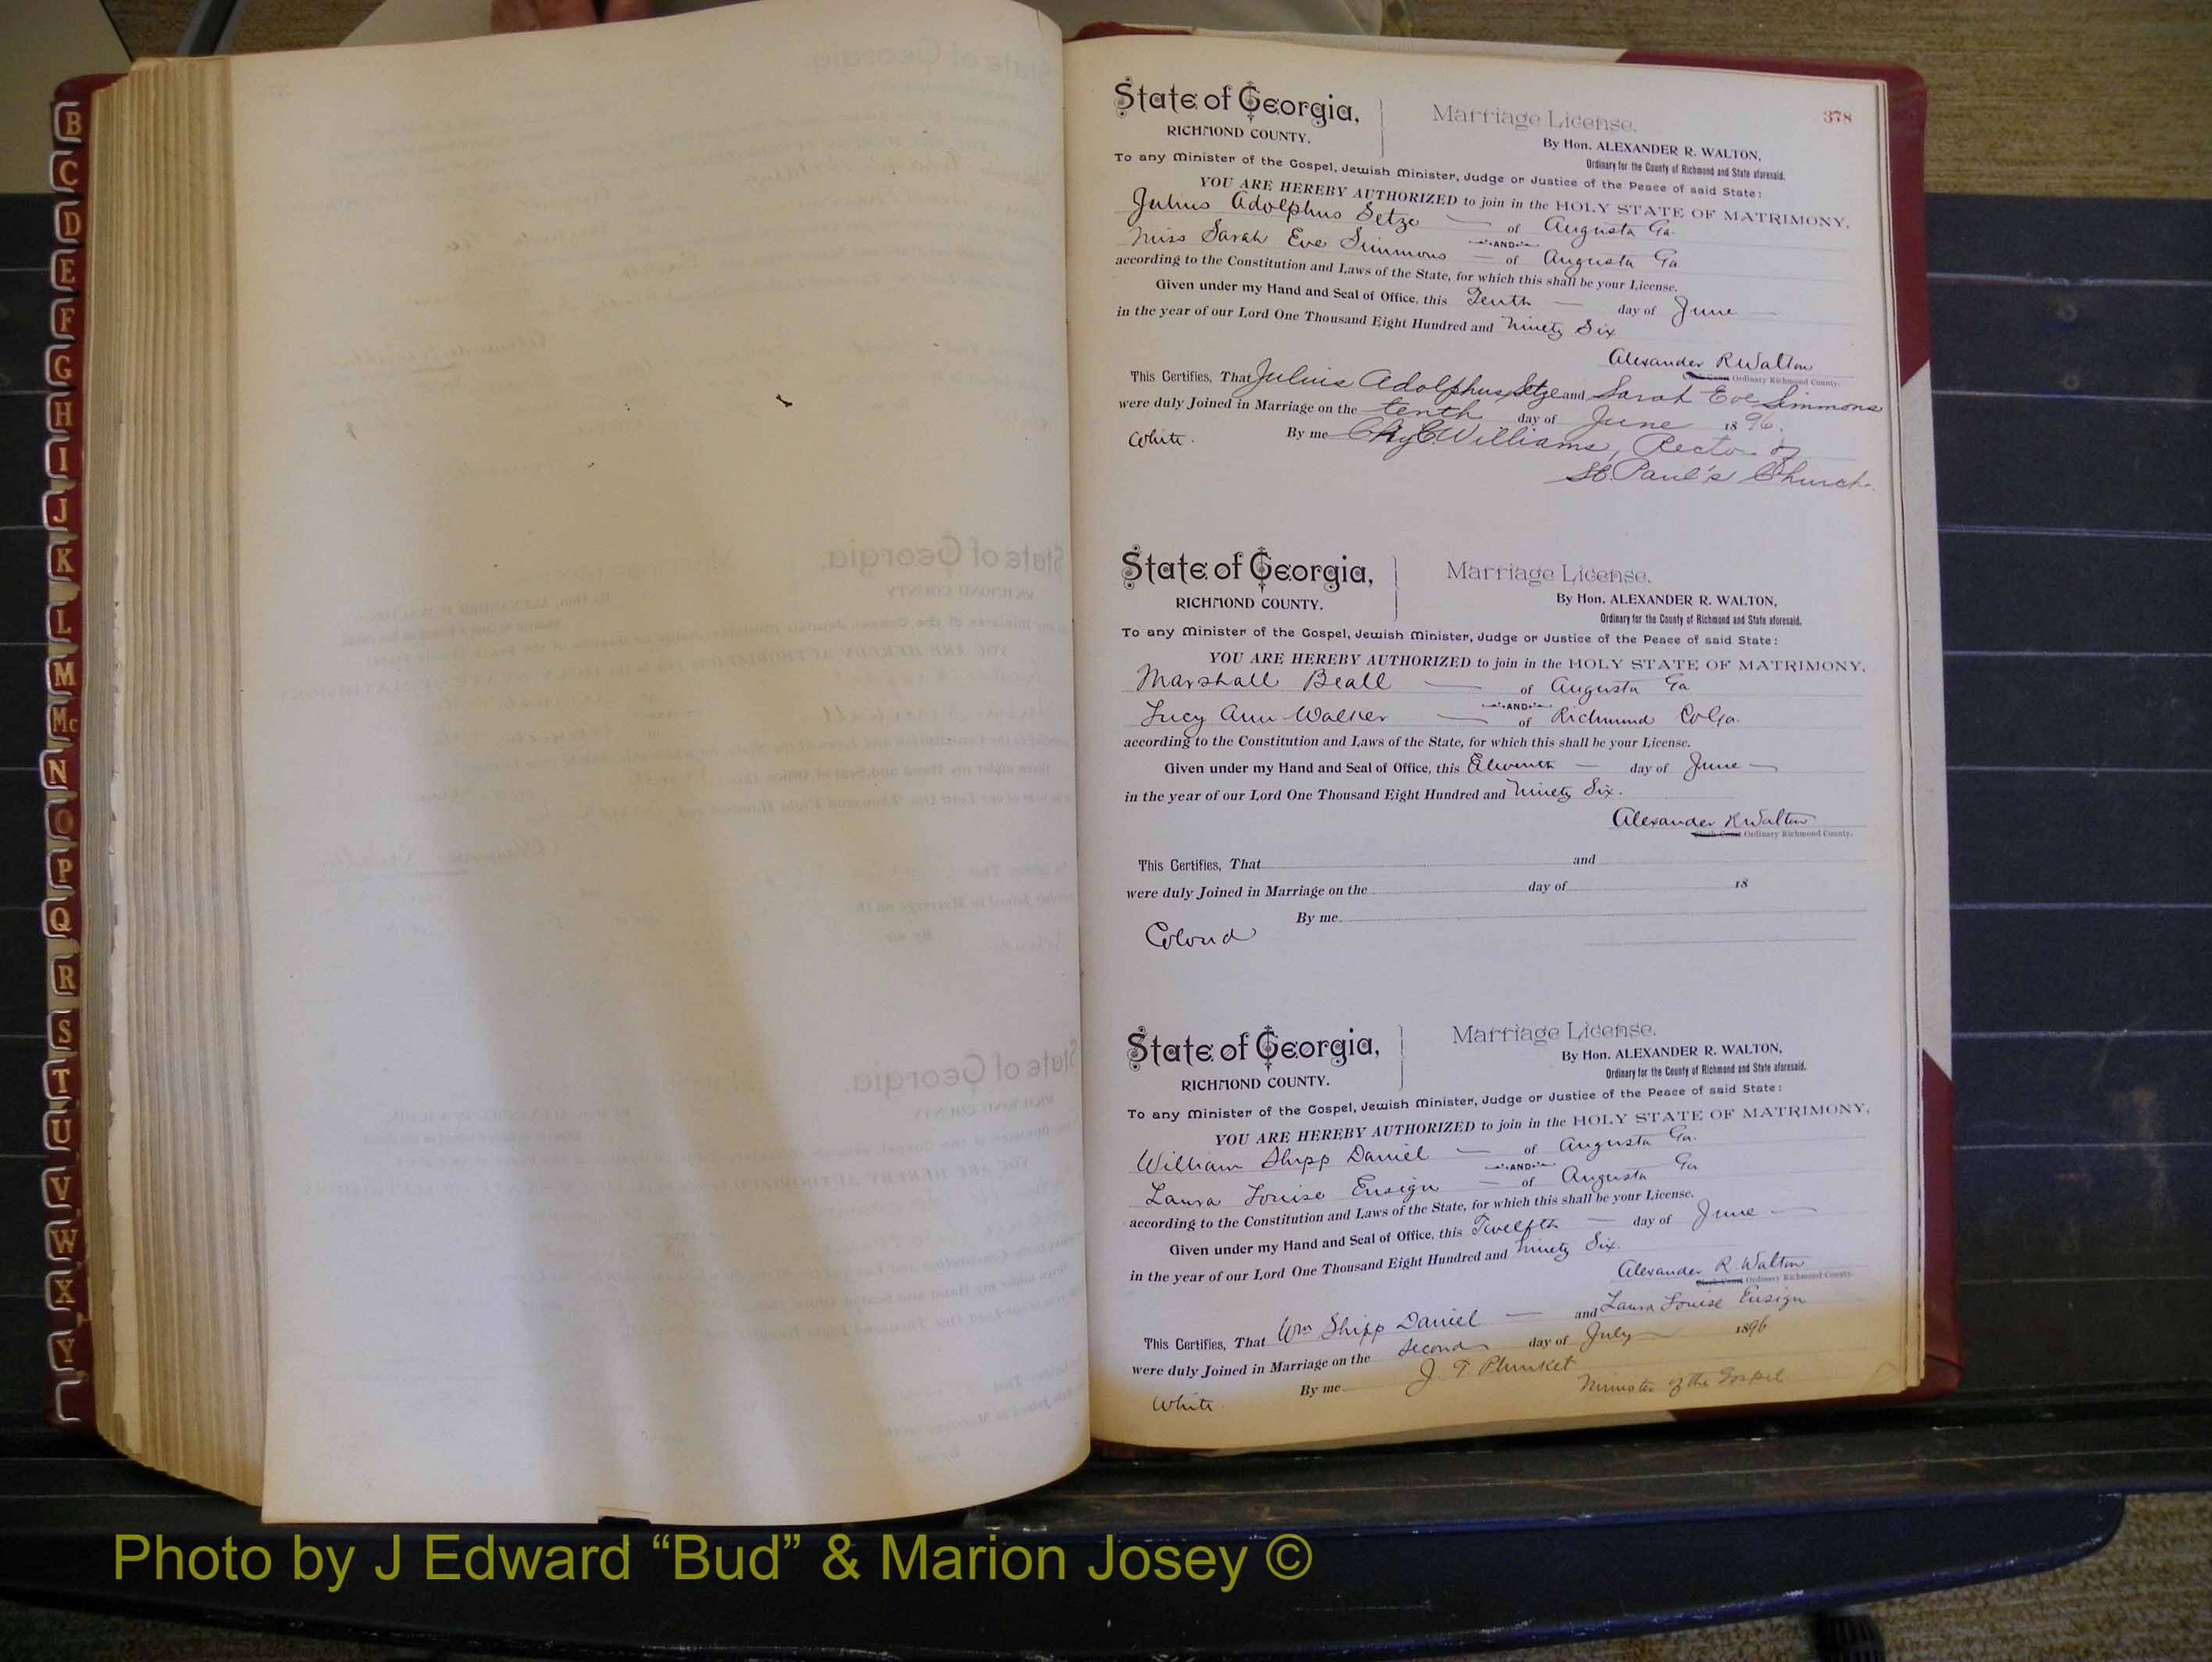 B
C
D
E
F
G
H
I
J
K
L
M
Mc
N
O
P
Q
R
S
T
U
V
W
X
Y
State of Georgia, Marriage License. 378
RICHMOND COUNTY. By Hon. ALEXANDER R. WALTON,
Ordinary for the County of Richmond and State aforesaid.
To any Minister of the Gospel, Jewish Minister, Judge or Justice of the Peace of said State:
YOU ARE HEREBY AUTHORIZED to join in the HOLY STATE OF MATRIMONY,
Julius Adolphus Setze of Augusta Ga.
AND
Miss Sarah Eve Simmons of Augusta Ga
according to the Constitution and Laws of the State, for which this shall be your License.
Given under my Hand and Seal of Office, this Tenth day of June
in the year of our Lord One Thousand Eight Hundred and Ninety Six
Alexander R Walton
Ordinary Richmond County.
This Certifies, That Julius Adolphus Setze and Sarah Eve Simmons
were duly Joined in Marriage on the tenth day of June 1896.
White. By me Williams, Rector of
St. Paul's Church.
State of Georgia, Marriage License.
RICHMOND COUNTY. By Hon. ALEXANDER R. WALTON,
Ordinary for the County of Richmond and State aforesaid.
To any Minister of the Gospel, Jewish Minister, Judge or Justice of the Peace of said State:
YOU ARE HEREBY AUTHORIZED to join in the HOLY STATE OF MATRIMONY,
Marshall Beall of Augusta Ga
AND
Lucy Ann Walker of Richmond Co Ga.
according to the Constitution and Laws of the State, for which this shall be your License.
Given under my Hand and Seal of Office, this Eleventh day of June
in the year of our Lord One Thousand Eight Hundred and Ninety Six.
Alexander R Walton
Ordinary Richmond County.
This Certifies, That and
were duly Joined in Marriage on the day of 18
By me
Colored
State of Georgia, Marriage License.
RICHMOND COUNTY. By Hon. ALEXANDER R. WALTON,
Ordinary for the County of Richmond and State aforesaid.
To any Minister of the Gospel, Jewish Minister, Judge or Justice of the Peace of said State:
YOU ARE HEREBY AUTHORIZED to join in the HOLY STATE OF MATRIMONY,
William Shipp Daniel of Augusta Ga.
AND
Laura Louise Ensign of Augusta Ga
according to the Constitution and Laws of the State, for which this shall be your License.
Given under my Hand and Seal of Office, this Twelfth day of June
in the year of our Lord One Thousand Eight Hundred and Ninety Six.
Alexander R. Walton
Ordinary Richmond County.
This Certifies, That Wm Shipp Daniel and Laura Louise Ensign
were duly Joined in Marriage on the Second day of July 1896
By me J. T. Plunket
White Minister of the Gospel
Photo by J Edward “Bud” & Marion Josey ©